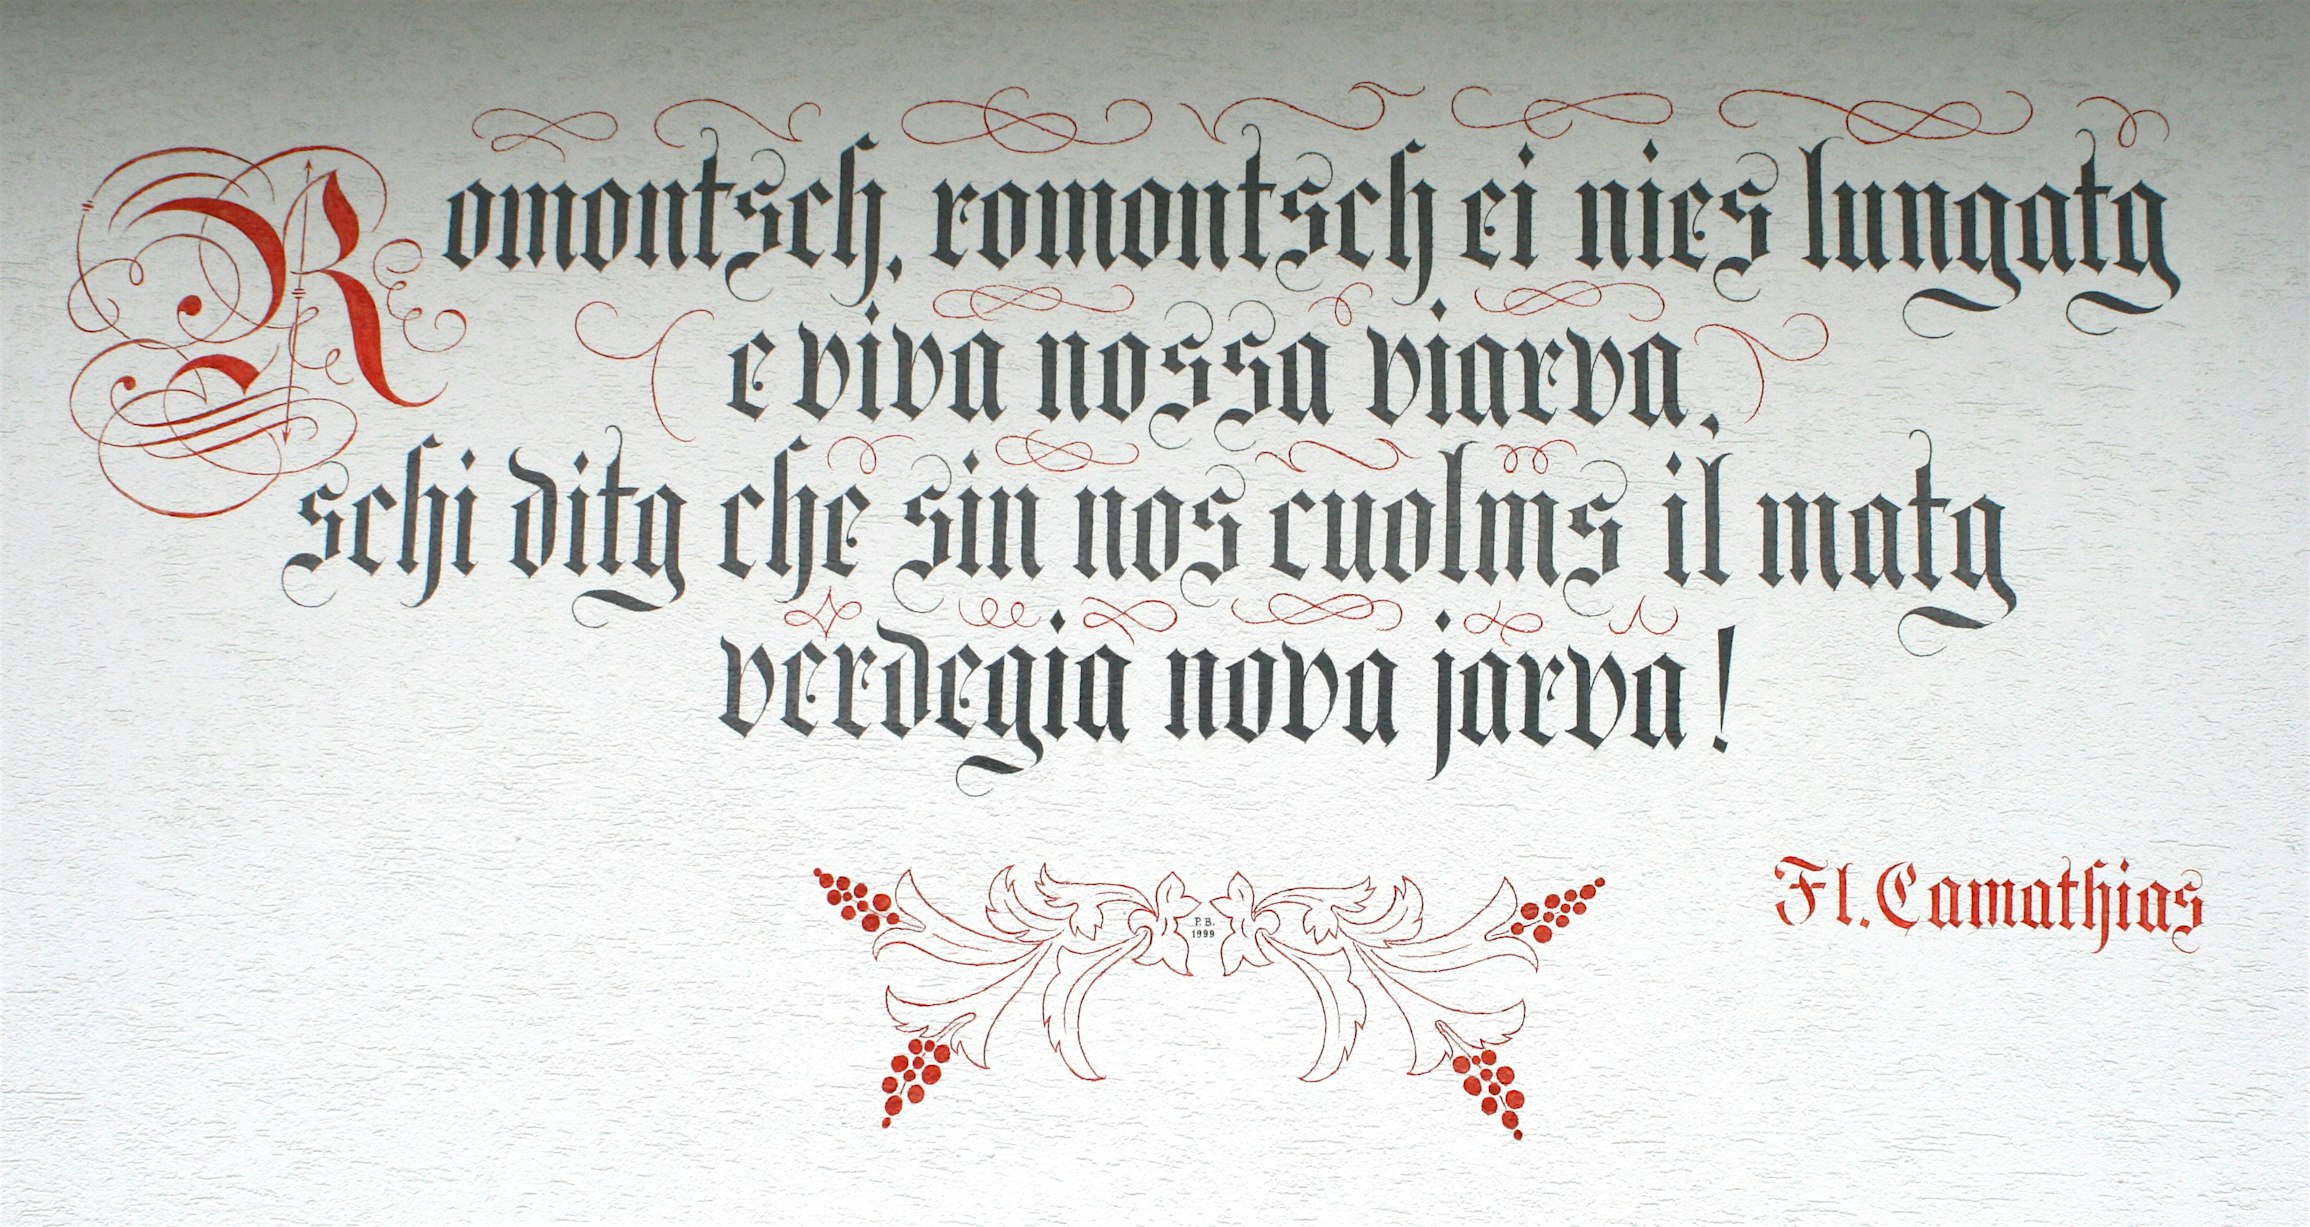 Romontsch, romontsch ei nies lungatg
e viva nossa viarva,
schi ditg che sin nos cuolms il matg
verdegia nova jarva!
Fl. Camathias
P. B.
1999